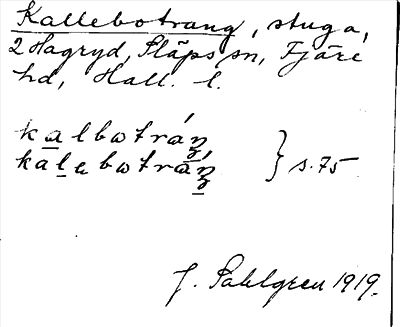 Kallebotrang, stuga,
2 Hagryd, Släps sn, Fjäre
hd, Hall. l.
kalbotráŋ,
kalebotráŋ } s. 75
J. Sahlgren 1919.